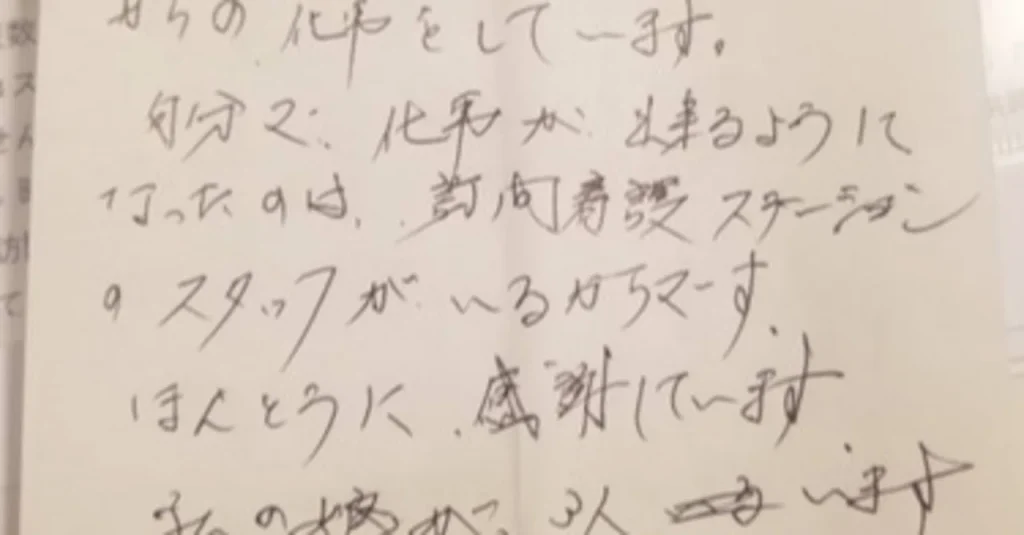 からの 仕事をしています。
自分で 仕事が 出来るように
なったのは、訪問看護ステーション
の スタッフが いるからです。
ほんとうに、感謝しています
私の が、3人 います
数
ス
せん
る
て